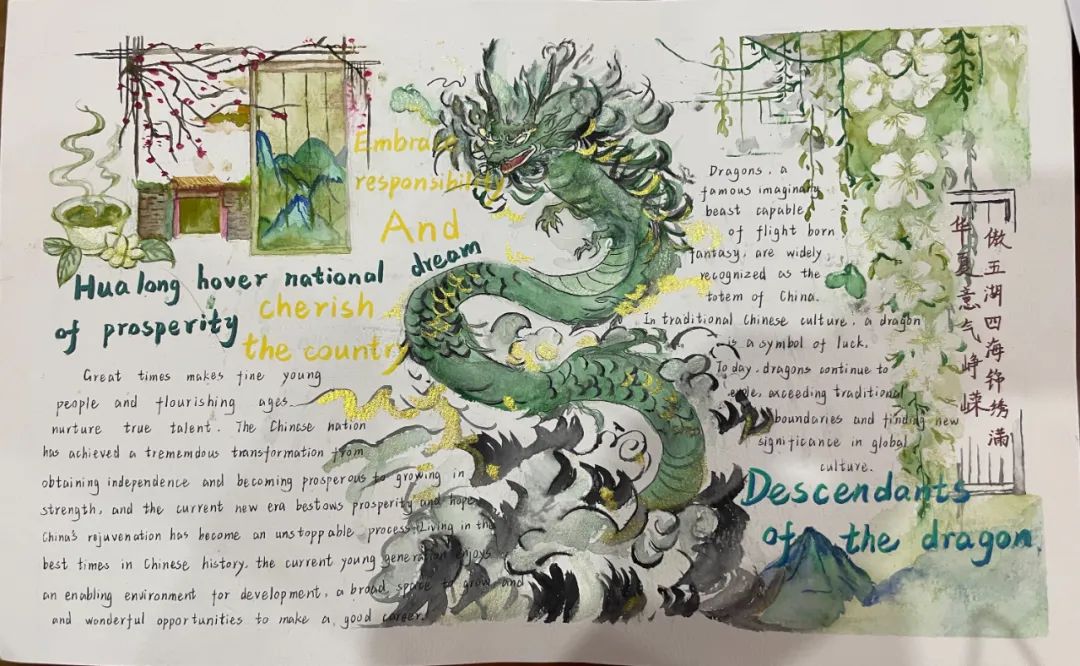 Embrace
responsibility
And
cherish
the country
Hua long hover national dream
of prosperity
Great times makes fine young
people and flourishing ages
nurture true talent. The Chinese nation
has achieved a trememdous transformation from
obtaining independence and becoming prosperous to growing in
strength, and the current new era bestows prosperity and hope.
China's rejuvenation has become an unstoppable process. Living in the
best times in Chinese history. the current young generation enjoys
an enabling environment for development, a broad space to grow and
and wonderful opportunities to make a good career.
Dragons, a
famous imaginary
beast capable
of flight born
fantasy, are widely
recognized as the
totem of China.
In traditional Chinese culture, a dragon
is a symbol of luck.
Today, dragons continue to
exceeding traditional
boundaries and finding new
significance in global
culture.
傲五湖四海锦绣满
华夏意气峥嵘
Descendants
of the dragon